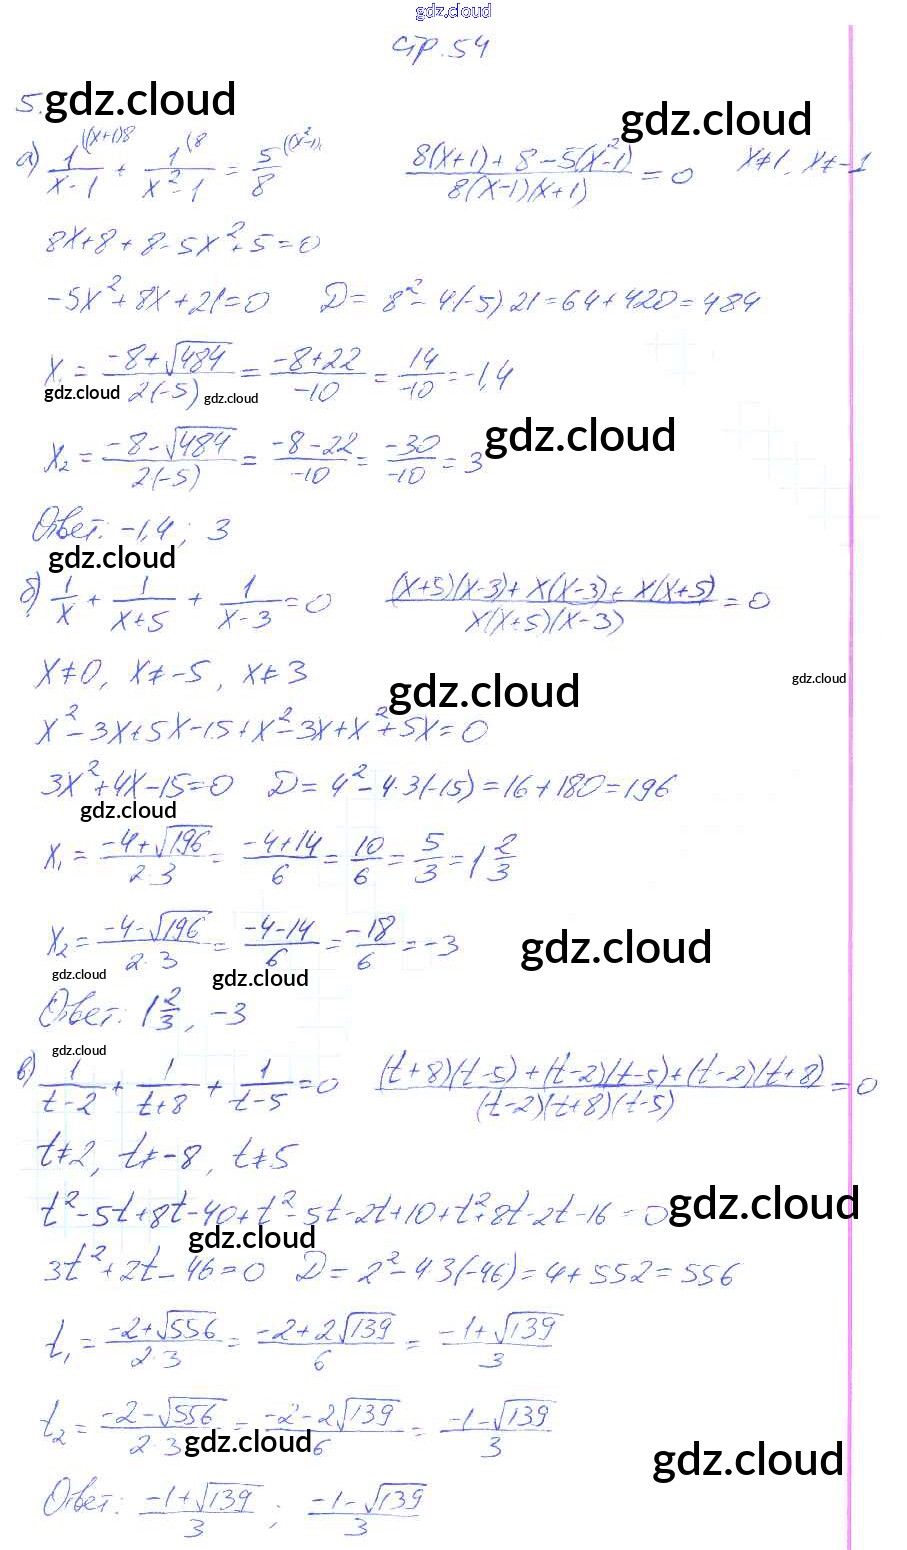 gdz.cloud
стр. 54
5. gdz.cloud
gdz.cloud
а) 1/(x-1) ((x+1)8 + 1/(x²-1) (8 = 5/8 ((x²-1) (8(x+1) + 8 - 5(x²-1))/(8(x-1)(x+1)) = 0 x≠1, x≠-1
8x+8+8-5x²+5=0
-5x²+8x+21=0 D = 8²-4(-5)21=64+420=484
x₁ = (-8+√484)/(2(-5)) = (-8+22)/(-10) = 14/(-10) = -1,4
gdz.cloud gdz.cloud
x₂ = (-8-√484)/(2·(-5)) = (-8-22)/(-10) = (-30)/(-10) = 3
gdz.cloud
Ответ: -1,4; 3
gdz.cloud
б) 1/x + 1/(x+5) + 1/(x-3) = 0 ((x+5)(x-3)+x(x-3)+x(x+5))/(x(x+5)(x-3)) = 0
x≠0, x≠-5, x≠3
gdz.cloud gdz.cloud
x²-3x+5x-15+x²-3x+x²+5x=0
3x²+4x-15=0 D = 4²-4·3(-15)=16+180=196
gdz.cloud
x₁ = (-4+√196)/(2·3) = (-4+14)/6 = 10/6 = 5/3 = 1 2/3
x₂ = (-4-√196)/(2·3) = (-4-14)/6 = -18/6 = -3
gdz.cloud
gdz.cloud gdz.cloud
Ответ: 1 2/3, -3
gdz.cloud
в) 1/(t-2) + 1/(t+8) + 1/(t-5) = 0 ((t+8)(t-5)+(t-2)(t-5)+(t-2)(t+8))/((t-2)(t+8)(t-5)) = 0
t≠2, t≠-8, t≠5
t²-5t+8t-40+t²-5t-2t+10+t²+8t-2t-16=0
gdz.cloud
gdz.cloud
3t²+2t-46=0 D = 2²-4·3(-46)=4+552=556
t₁ = (-2+√556)/(2·3) = (-2+2√139)/6 = (-1+√139)/3
t₂ = (-2-√556)/(2·3) = (-2-2√139)/6 = (-1-√139)/3
gdz.cloud
gdz.cloud
Ответ: (-1+√139)/3; (-1-√139)/3